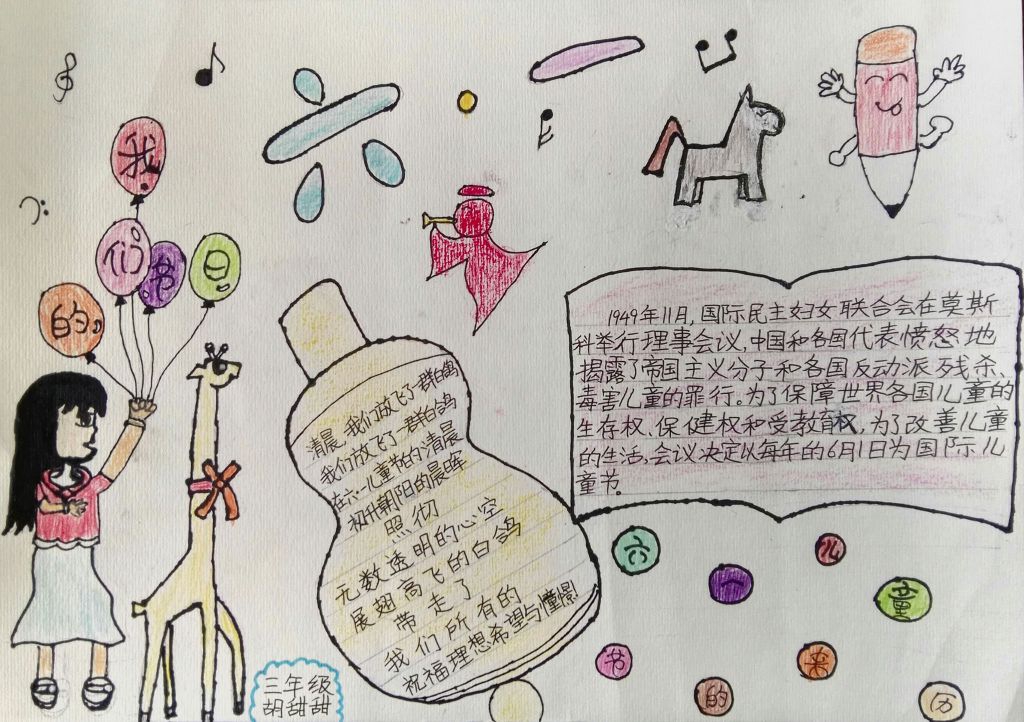 六·一
我
们节日
的
清晨,我们放飞了一群白鸽
我们放飞了一群白鸽
在六一儿童节的清晨
初升朝阳的晨晖
照彻
无数透明的心空
展翅高飞的白鸽
带走了
我们所有的
祝福理想希望与憧憬
1949年11月,国际民主妇女联合会在莫斯
科举行理事会议,中国和各国代表愤怒地
揭露了帝国主义分子和各国反动派残杀、
毒害儿童的罪行。为了保障世界各国儿童的
生存权、保健权和受教育权,为了改善儿童
的生活,会议决定以每年的6月1日为国际儿
童节。
六一儿童
节的来历
三年级
胡甜甜